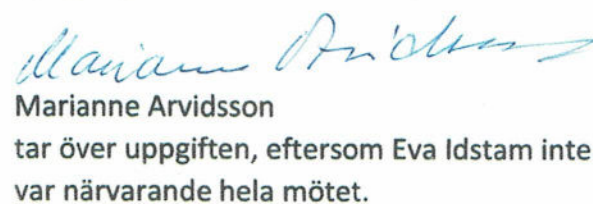 Marianne Arvidsson
Marianne Arvidsson
tar över uppgiften, eftersom Eva Idstam inte
var närvarande hela mötet.